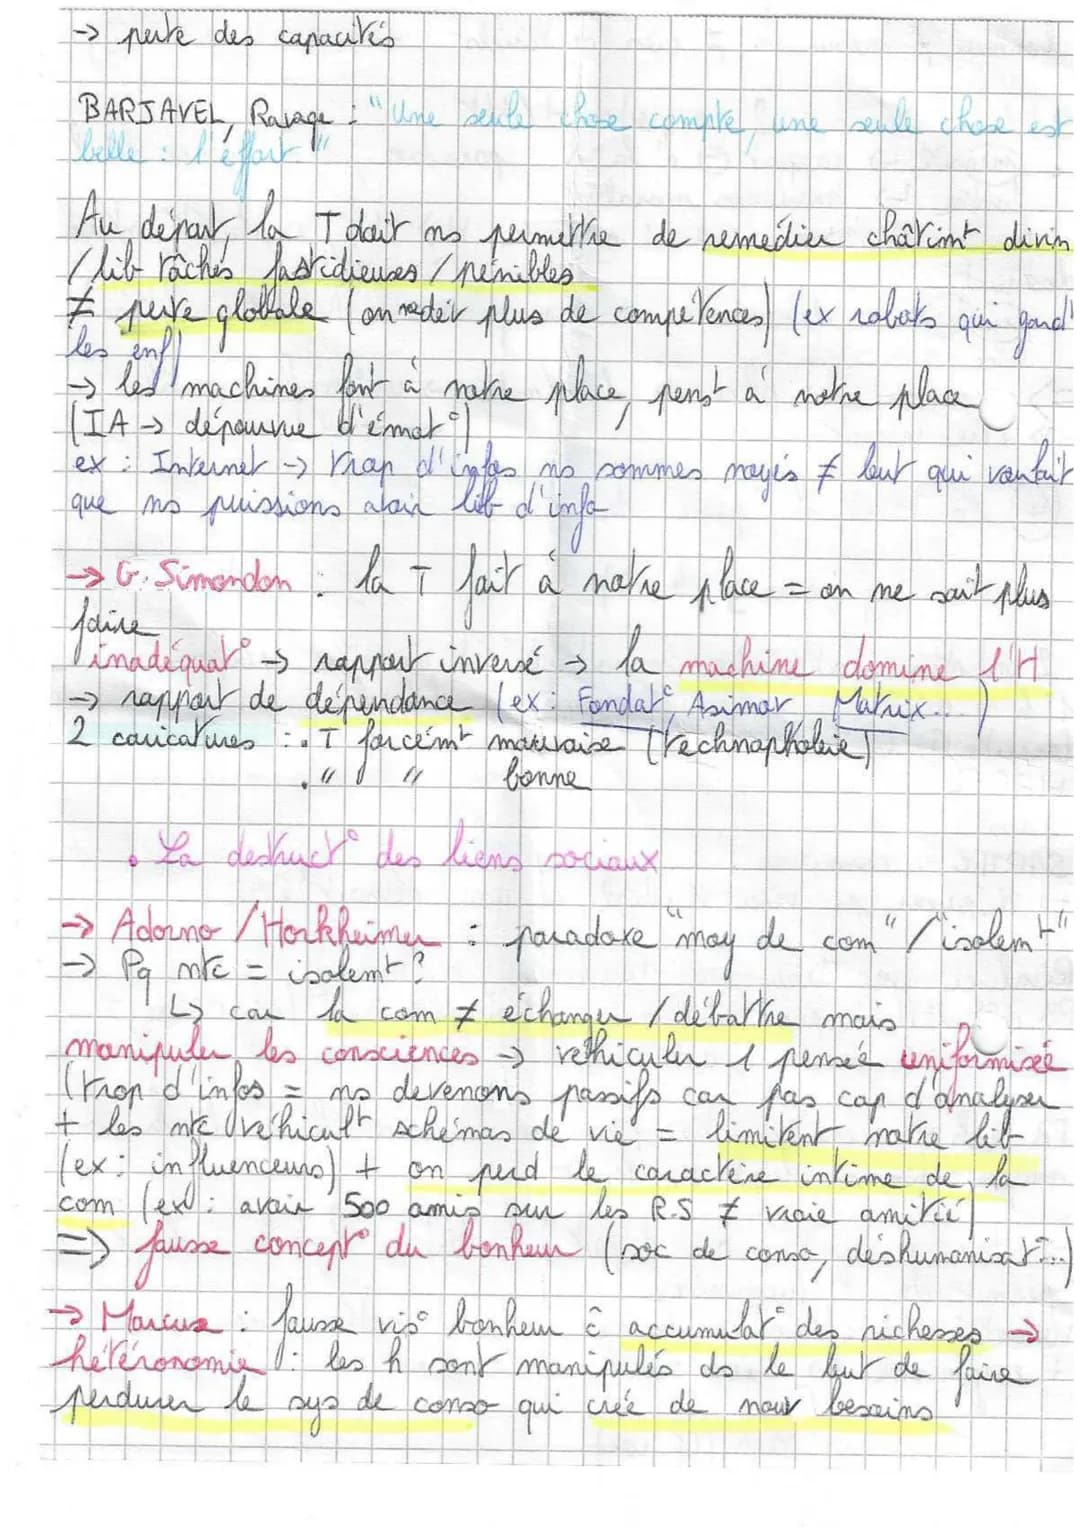 -> perte des capacités
BARJAVEL, Ravage : "Une seule chose compte, une seule chose est
belle : l'effort"
Au départ, la T doit ns permettre de remédier châtimt divin
/ lib tâches fastidieuses / pénibles
≠ perte globale (on perd plus de compétences) (ex robots qui gardt
les enf)
-> les machines font à notre place, penst à notre place
(IA -> dépourvue d'émot°)
ex : Internet -> trop d'infos ns sommes noyés ≠ but qui voulait
que ns puissions avoir lib d'info
-> G. Simondon : la T fait à notre place = on ne sait plus
faire
inadéquat° -> rapport inversé -> la machine domine l'H
-> rapport de dépendance (ex : Fondat°, Asimov Matrix...)
2 caricatures : . T forcémt mauvaise (technophobie)
. " " bonne
• La destruct° des liens sociaux
-> Adorno / Horkheimer : paradoxe "moy de com" / "isolemt"
-> Pq ntc = isolemt ?
↳ car la com ≠ échanger / débattre mais
manipuler les consciences -> véhiculer 1 pensée uniformisée
(trop d'infos = ns devenons passifs car pas cap d'analyser
+ les ntc véhicult schémas de vie = limitent notre lib
(ex : influenceurs) + on perd le caractère intime de la
com (ex : avoir 500 amis sur les R.S ≠ vraie amitié)
=> fausse concept° du bonheur (soc de conso, déshumanisat°...)
-> Marcuse : fausse vis° bonheur ĉ accumulat° des richesses ->
hétéronomie : les h sont manipulés ds le but de faire
perdurer le sys de conso qui crée de nouv besoins